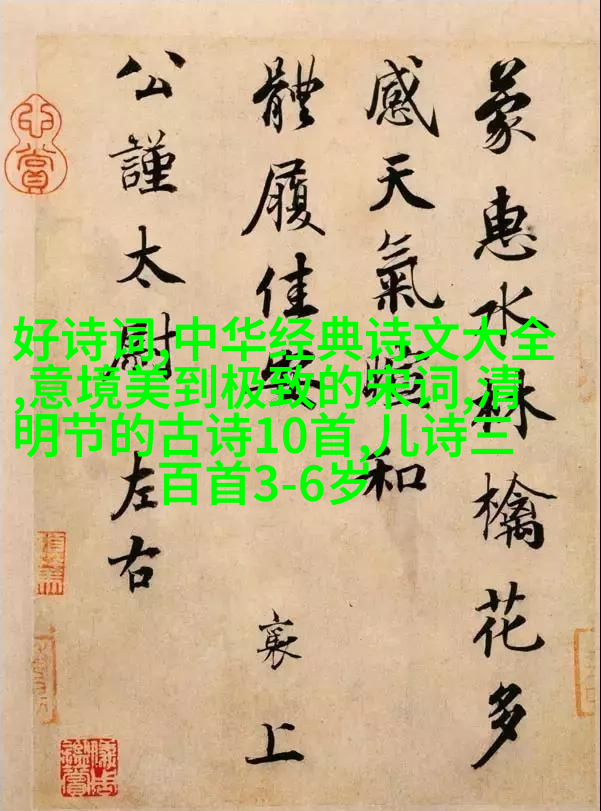 蒙惠水林檎花多
感天氣和
體履佳安
襄上
公謹太尉左右
好诗词,中华经典诗文大全
,意境美到极致的宋词,清
明节的古诗10首,儿诗三
百首3-6岁